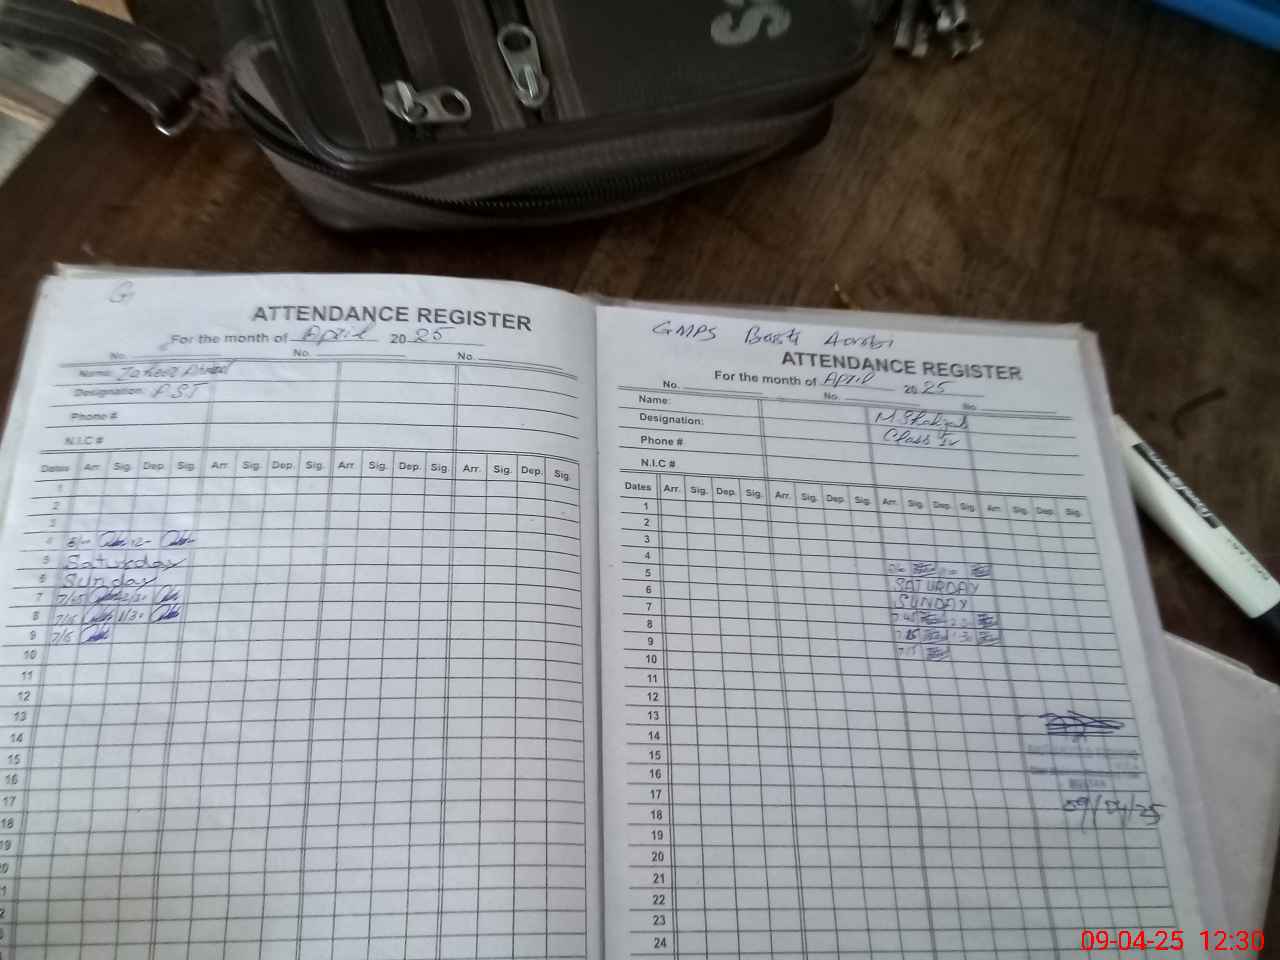 G
ATTENDANCE REGISTER
For the month of April 2025
No. No. No.
Name: Zaheer Ahmad
Designation: PST
Phone #
N.I.C #
Dates Arr. Sig. Dep. Sig. Arr. Sig. Dep. Sig. Arr. Sig. Dep. Sig. Arr. Sig. Dep. Sig.
1
2
3
4 8/00 12-
5 Saturday
6 Sunday
7 7/45 12/30
8 7/15 1/30
9 7/15
10
11
12
13
14
15
16
17
18
19
GMPS Basti
ATTENDANCE REGISTER
For the month of April 2025
No. No. No.
Name: M Shahzad
Designation: Class IV
Phone #
N.I.C #
Dates Arr. Sig. Dep. Sig. Arr. Sig. Dep. Sig. Arr. Sig. Dep. Sig. Arr. Sig. Dep. Sig.
1
2
3
4
5
6 SATURDAY
7 SUNDAY
8 7 45
9 7 15 1 30
10 7 15
11
12
13
14
15
16
17
18 09/04/25
19
20
21
22
23
24
09-04-25 12:30